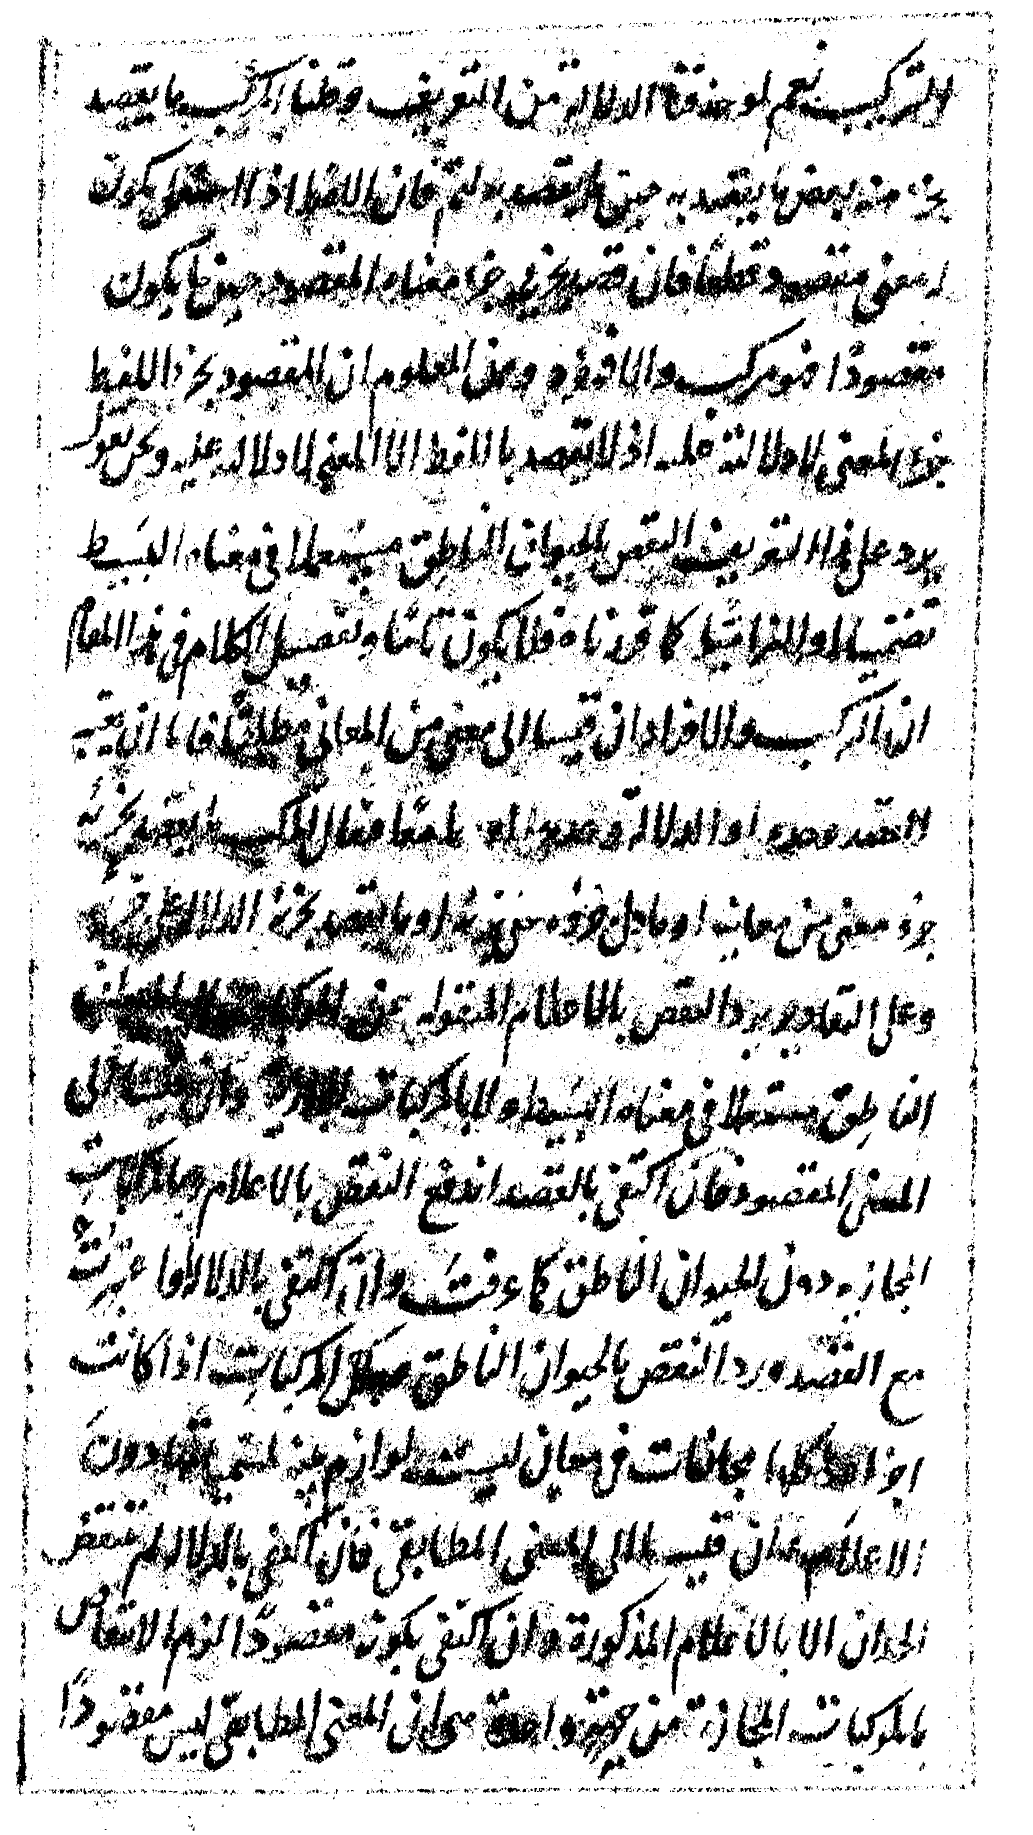 لا التركيب نعم لو حذفنا الدلالة من التعريف وقلنا المركب ما يقصد
بجزء منه بعض ما يقصد به حين ما يقصد به لتم فان اللفظ اذا استعمل يكون
له معنى مقصود قطعا فان قصد بجزئه جزء معناه المقصود حين ما يكون
مقصودا فهو مركب والا فمفرد ومن المعلوم ان المقصود بجزء اللفظ
جزء المعنى لا دلالة له عليه اذ لا يقصد باللفظ الا المعنى لا دلالة عليه ونحن نقول
يرد على هذا التعريف النقض بالحيوان الناطق مستعملا فى معناه البسيط
تضمنيا او التزاميا كما قررناه فلا يكون تاما وتفصيل الكلام فى هذا المقام
ان التركيب والافراد ان قيسا الى معنى من المعانى مطلقا فاما ان يعتبر
القصد وحده او الدلالة وحدها او معا فيقال المركب ما يقصد بجزئه
جزء معنى من معانيه او ما يدل جزؤه او ما يقصد بجزئه الدال على جزء
وعلى التقادير يرد النقض بالاعلام المنقولة عن المركبات لا الحيوان
الناطق مستعملا فى معناه البسيط ولا بالمركبات المجازية وان قيسا الى
المعنى المقصود فان اكتفى بالقصد اندفع النقض بالاعلام وبالمركبات
المجازية دون الحيوان الناطق كما عرفت وان اكتفى بالدلالة او اعتبرت
مع القصد ورد النقض بالحيوان الناطق وبكل المركبات اذا كانت
اجزاؤها كلها مجازات فى معان ليست لوازم بينة لمسمياتها دون
الاعلام وان قيسا الى المعنى المطابقى فان اكتفى بالدلالة لم ينتقض
الحدان الا بالاعلام المذكورة وان اكتفى بكون مقصودا لزم الانتقاض
بالمركبات المجازية من جهة واحدة هى ان المعنى المطابقى ليس مقصودا